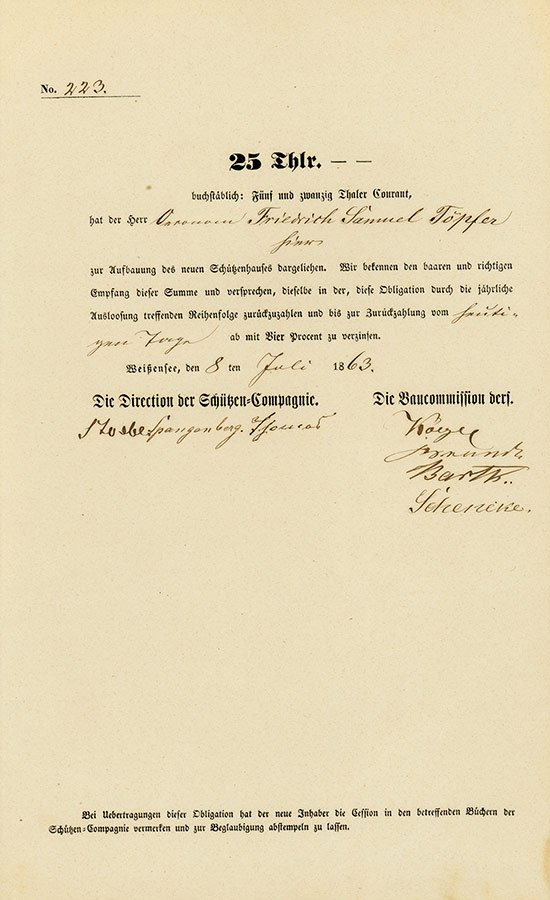 No. 223.
25 Thlr. — —
buchstäblich: Fünf und zwanzig Thaler Courant,
hat der Herr Oeconom Friedrich Samuel Töpfer
hier
zur Aufbauung des neuen Schützenhauses dargeliehen. Wir bekennen den baaren und richtigen
Empfang dieser Summe und versprechen, dieselbe in der, diese Obligation durch die jährliche
Ausloosung treffenden Reihenfolge zurückzuzahlen und bis zur Zurückzahlung vom heuti-
gen Tage ab mit Vier Procent zu verzinsen.
Weißensee, den 8 ten Juli 1863.
Die Direction der Schützen-Compagnie. Die Baucommission ders.
Spangenberg. Thomas
Barth.
Schencke.
Bei Uebertragungen dieser Obligation hat der neue Inhaber die Cession in den betreffenden Büchern der
Schützen-Compagnie vermerken und zur Beglaubigung abstempeln zu lassen.